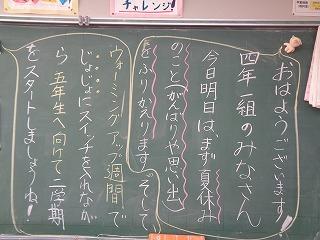 チャレンジ!
おはようございます!
四年二組のみなさん
今日明日は、まず夏休み
のこと(がんばりや思い出)
をふりかえります。そして、
ウォーミングアップ週間で
じょじょにスイッチを入れなが
ら五年生へ向けて二学期
をスタートしましょうね!